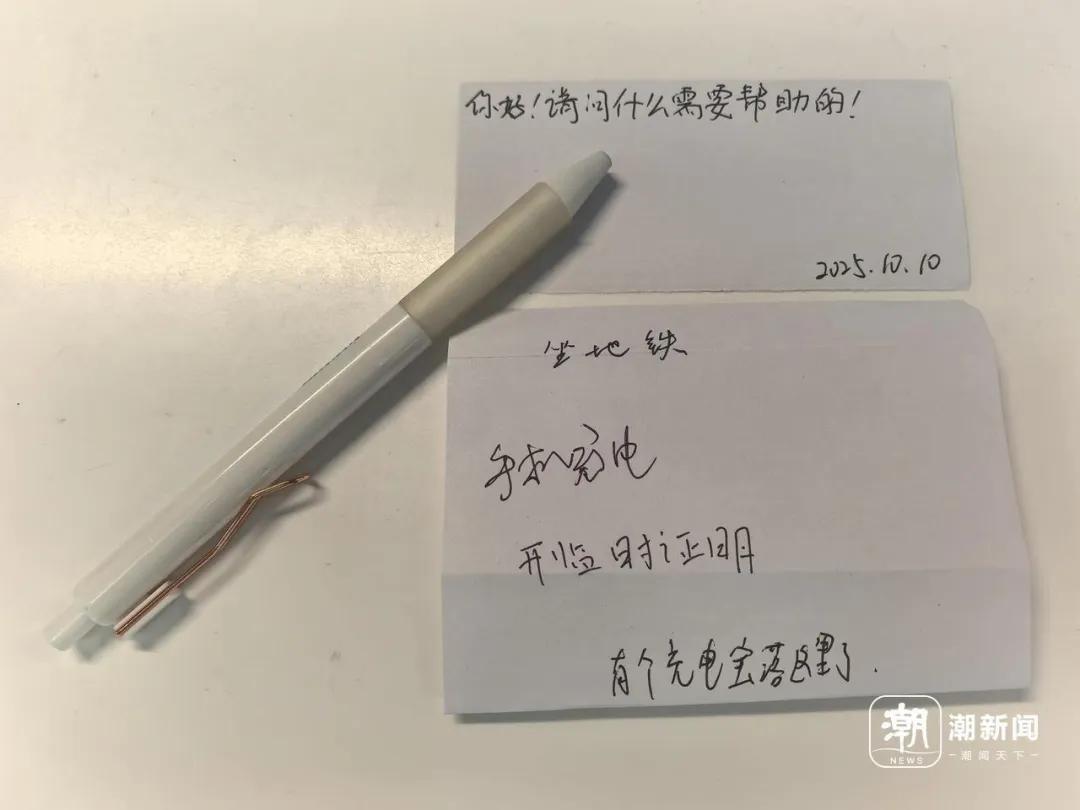 你好!请问什么需要帮助的!
2025.10.10
坐地铁
手机充电
开临时证明
有个充电宝落这里了.
潮
NEWS
潮新闻
潮闻天下